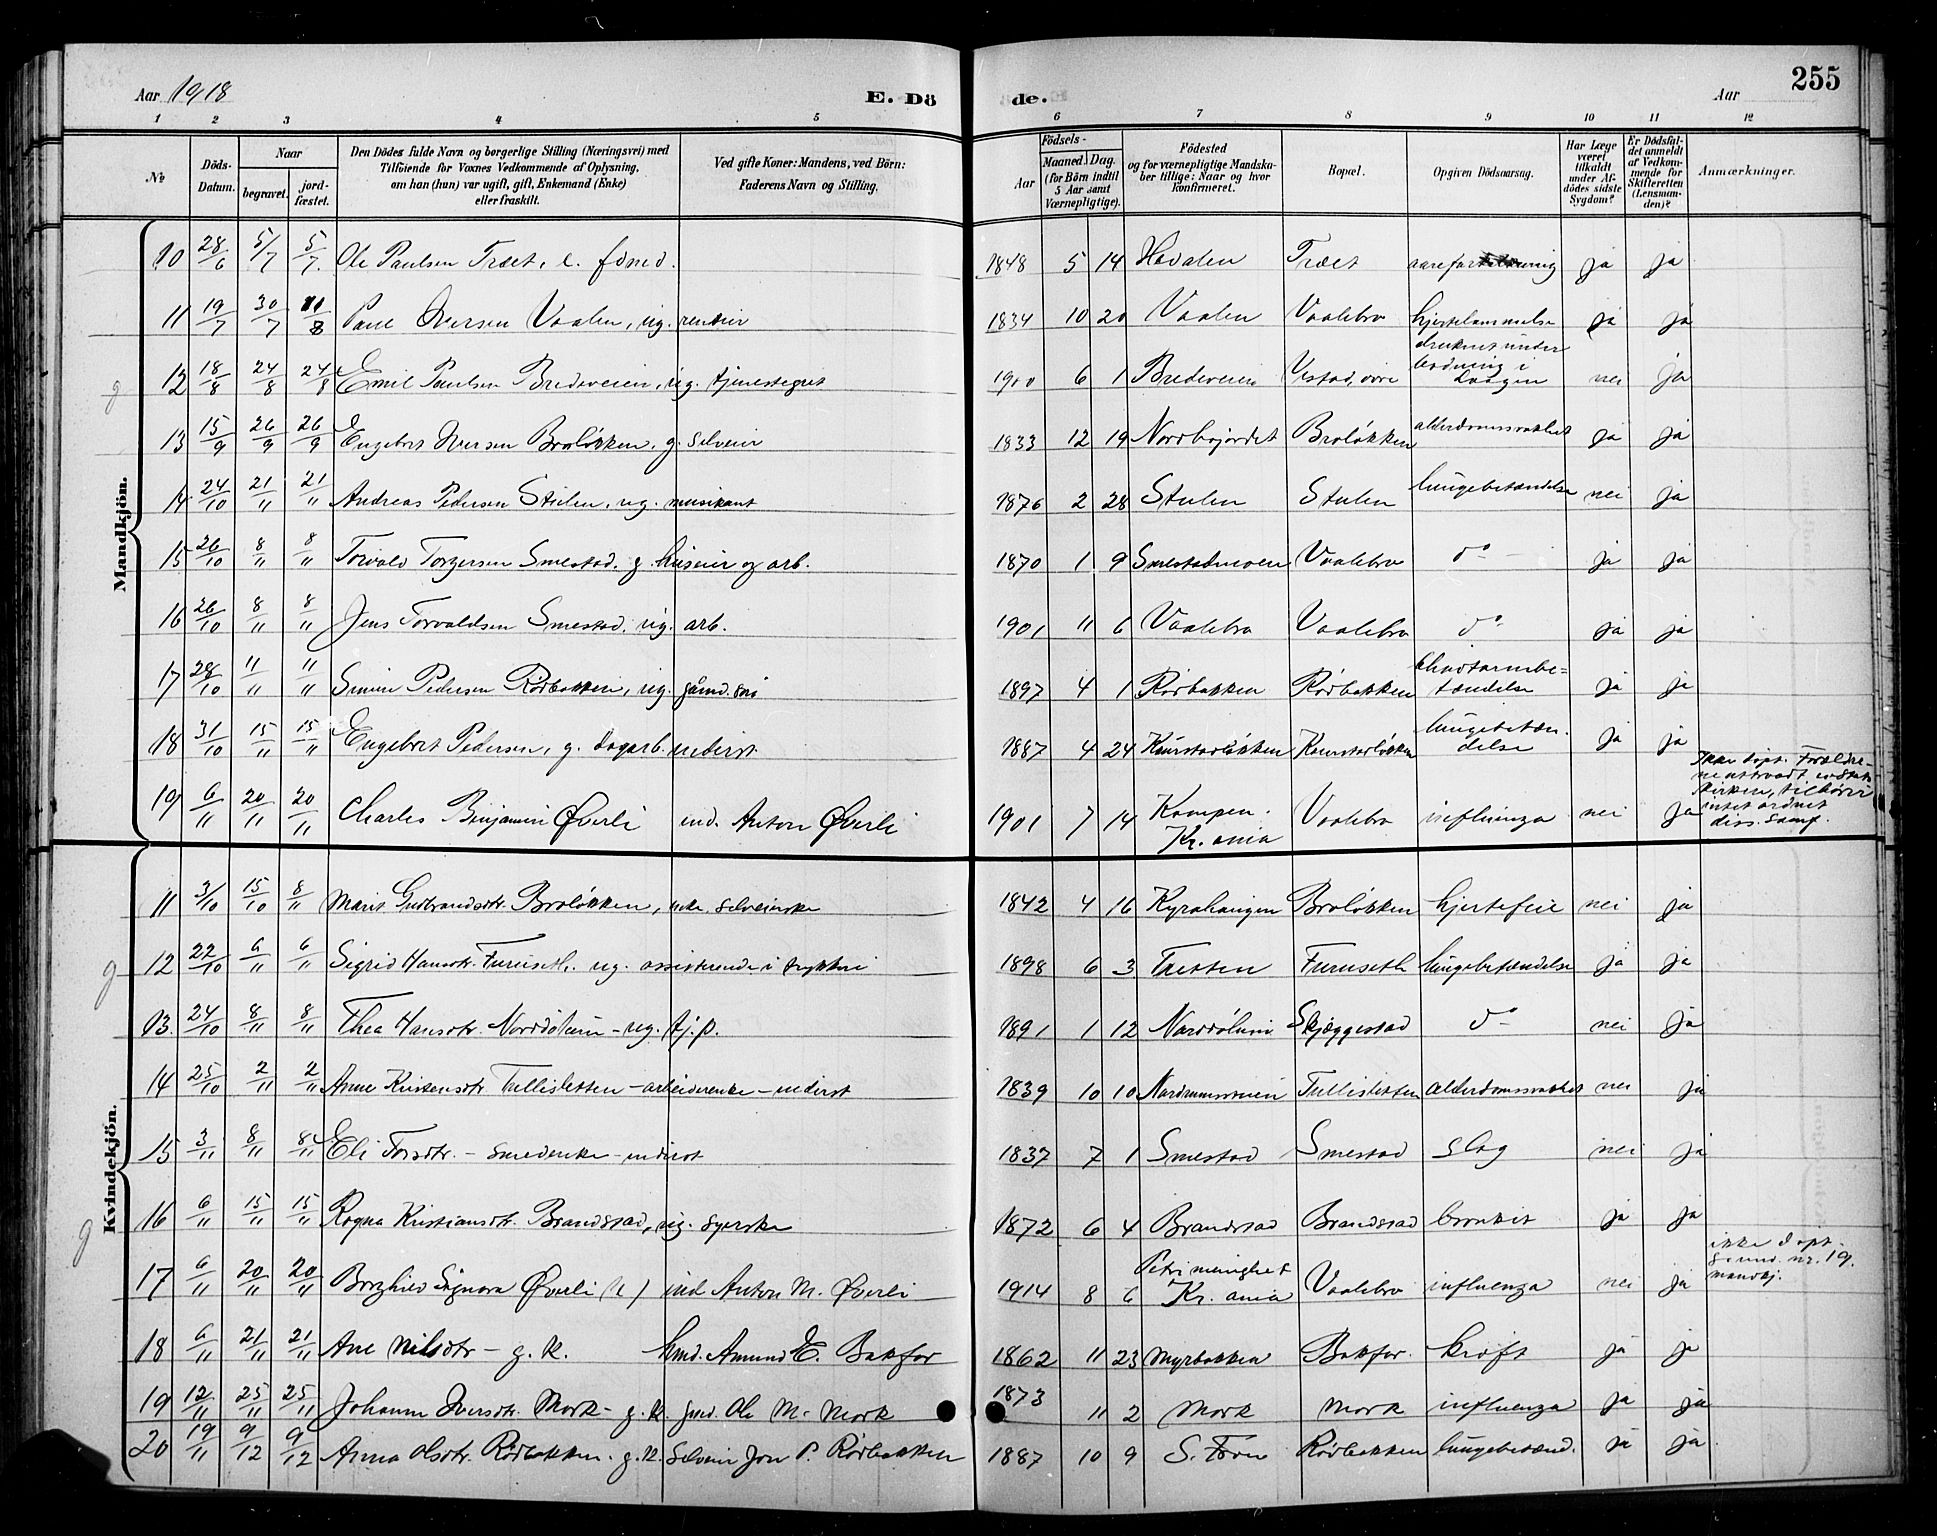 Aar 1918 E. Dö de. Aar 255
1 2 3 4 5 6 7 8 9 10 11 12
№ Döds-Datum. Naar begravet. jord-fæstet. Den Dödes fulde Navn og borgerlige Stilling (Næringsvei) med Tilföiende for Voxnes Vedkommende af Oplysning, om han (hun) var ugift, gift, Enkemand (Enke) eller fraskilt. Ved gifte Koner: Mandens, ved Börn: Faderens Navn og Stilling. Födsels- Aar Maaned. Dag. (for Börn indtil 5 Aar samt Værnepligtige). Födested og for værnepligtige Mandskaber tillige: Naar og hvor konfirmeret. Bopæl. Opgiven Dödsaarsag. Har Læge været tilkaldt under Afdödes sidste Sygdom? Er Dödsfaldet anmeldt af Vedkommende for Skifteretten (Lensmanden)? Anmærkninger.
Mandkjön.
10 28/6 5/7 5/7 Ole Paulsen Træet, e. 1848 5 14 Træet ja ja
11 19/7 30/7 Paul Iversen Vaalen, ug. rentier 1834 10 20 Vaalen Vaalebro hjertelammelse ja ja
12 18/8 24/8 24/8 Emil Paulsen Bredeveien, ug. tjenestegut 1900 6 1 Bredeveien druknet under badning i Laagen nei ja
13 15/9 26/9 26/9 Engebret Iversen Braløkken, g. selveier 1833 12 19 Braløkken alderdomssvakhet ja ja
14 24/10 21/11 21/11 Andreas Pedersen Stulen, ug. musikant 1876 2 28 Stulen Stulen lungebetændelse nei ja
15 26/10 8/11 8/11 Torvald Torgersen Smestad. g. huseier og arb. 1870 1 9 Smestadmoen Vaalebro do ja ja
16 26/10 8/11 8/11 Jens Torvaldsen Smestad. ug. arb. 1901 11 6 Vaalebro Vaalebro do ja ja
17 28/10 11/11 11/11 Simen Pedersen Rødbakken, ug. gaardm. søn 1897 4 1 Rødbakken Rødbakken blindtarmbe-tændelse ja ja
18 31/10 15/11 15/11 Engebret Pedersen, g. dagarb. inderst 1887 4 24 Kaurstadløkken Kaurstadløkken lungebetæn-delse ja ja
19 6/11 20/11 20/11 Charles Benjamin Øverli ind. Anton Øverli 1901 7 14 Kampen Kr.ania Vaalebro influenza nei ja Ikke døpt. Forældre-ne uttraadt av Stats-kirken, tilhører intet ordnet diss. samf.
Kvindekjön.
11 3/10 15/10 8/11 Marit Gudbrandsdtr. Braløkken, enke, selveierske 1842 4 16 Kyrahaugen Braløkken hjertefeil nei ja
g 12 22/10 6/11 6/11 Sigrid Hansdtr. Furuseth. ug. assisterende i trykkeri 1898 6 3 Tretten Furuseth lungebetændelse ja ja
13. 24/10 8/11 8/11 Thea Hansdtr. Norddølum – ug. tj.p. 1891 1 12 Norddølum Skjæggestad do nei ja
14 25/10 2/11 2/11 Anne Kristensdtr. Tullisletten – arbeiderenke – inderst 1839 10 10 Tullisletten alderdomssvakhet nei ja
15 3/11 8/11 8/11 Eli Torsdtr. – smedenke – inderst 1837 7 1 Smestad Smestad slag nei ja
g 16 6/11 15/11 15/11 Ragna Kristiansdtr. Brandstad, ug. syerske 1872 6 4 Brandstad Brandstad bronkit ja ja
17 6/11 20/11 20/11 Borghild Signora Øverli ind Anton M. Øverli 1914 8 6 Petri menighet Kr. ania Vaalebro influenza nei ja ikke døpt. nr. 19. mandkj.
18 6/11 21/11 21/11 Ane Nilsdtr – g. k. Amund E. Bakfor 1862 11 23 Myrbakken Bakfor. kræft ja ja
19 12/11 25/11 25/11 Johanne Iversdtr. Mork – g. k. gmd. Ole M. Mork 1873 11 2 Mork Mork influenza ja ja
20 19/11 9/12 9/12 Anna Olsdtr. Rødbakken. g. k. Selveier Jon P. Rødbakken 1887 10 9 S. Fron Rødbakken lungebetænd. ja ja